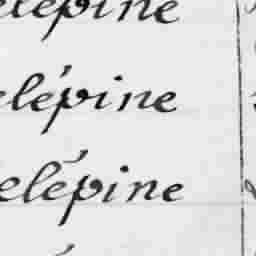 elépine
elépine
elépine